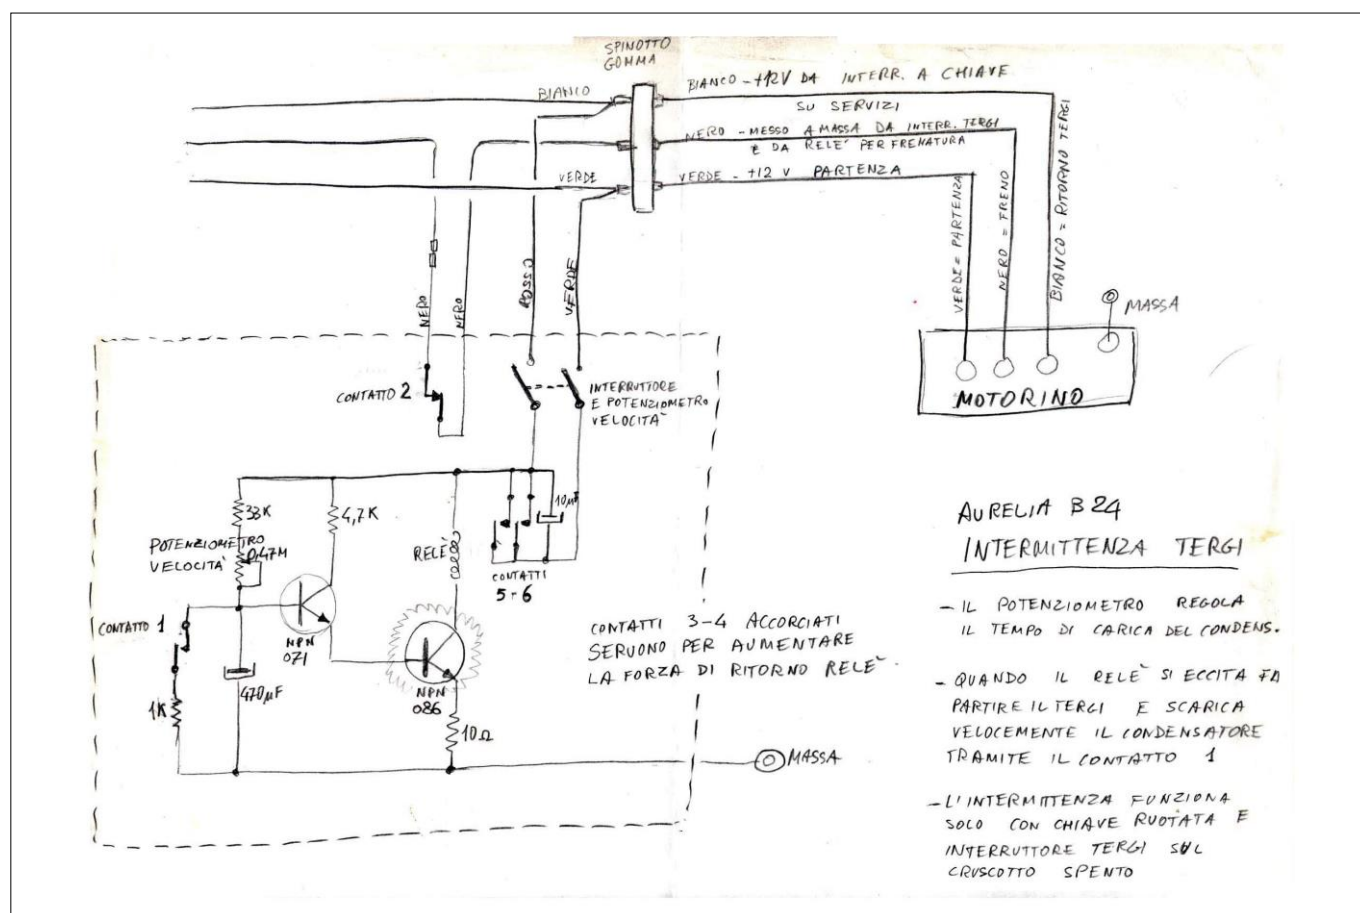 SPINOTTO
GOMMA
BIANCO
BIANCO - +12V DA INTERR. A CHIAVE
SU SERVIZI
NERO - MESSO A MASSA DA INTERR. TERGI
E DA RELE' PER FRENATURA
VERDE
VERDE - +12 V PARTENZA
VERDE = PARTENZA
NERO = FRENO
BIANCO = RITORNO TERGI
MASSA
MOTORINO
NERO
NERO
ROSSO
VERDE
CONTATTO 2
INTERRUTTORE
E POTENZIOMETRO
VELOCITA'
33K
4,7K
10µF
POTENZIOMETRO
VELOCITA'
0,47M
RELE'
CONTATTI
5-6
CONTATTO 1
NPN
071
470µF
1K
NPN
086
10Ω
MASSA
CONTATTI 3-4 ACCORCIATI
SERVONO PER AUMENTARE
LA FORZA DI RITORNO RELE'.
AURELIA B24
INTERMITTENZA TERGI
- IL POTENZIOMETRO REGOLA
IL TEMPO DI CARICA DEL CONDENS.
- QUANDO IL RELE' SI ECCITA FA
PARTIRE IL TERGI E SCARICA
VELOCEMENTE IL CONDENSATORE
TRAMITE IL CONTATTO 1
- L'INTERMITTENZA FUNZIONA
SOLO CON CHIAVE RUOTATA E
INTERRUTTORE TERGI SUL
CRUSCOTTO SPENTO